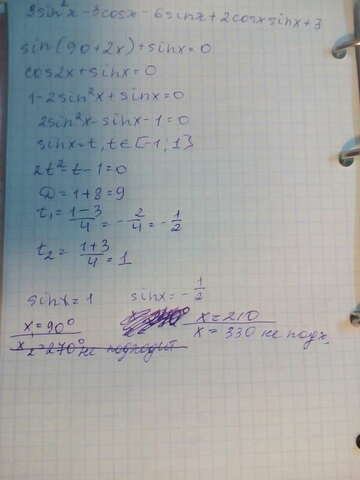 sin²x - 3cosx - 6sinx + 2cosx sinx + 3
sin(90+2x)+sinx=0
cos2x+sinx=0
1-2sin²x+sinx=0
2sin²x-sinx-1=0
sinx=t, t∈[-1;1]
2t²-t-1=0
D=1+8=9
t₁= (1-3)/4 = -2/4 = -1/2
t₂= (1+3)/4 = 1
sinx=1 sinx=-1/2
x₁=90° x=210
x₂=270° не подходит x=330 не подх.